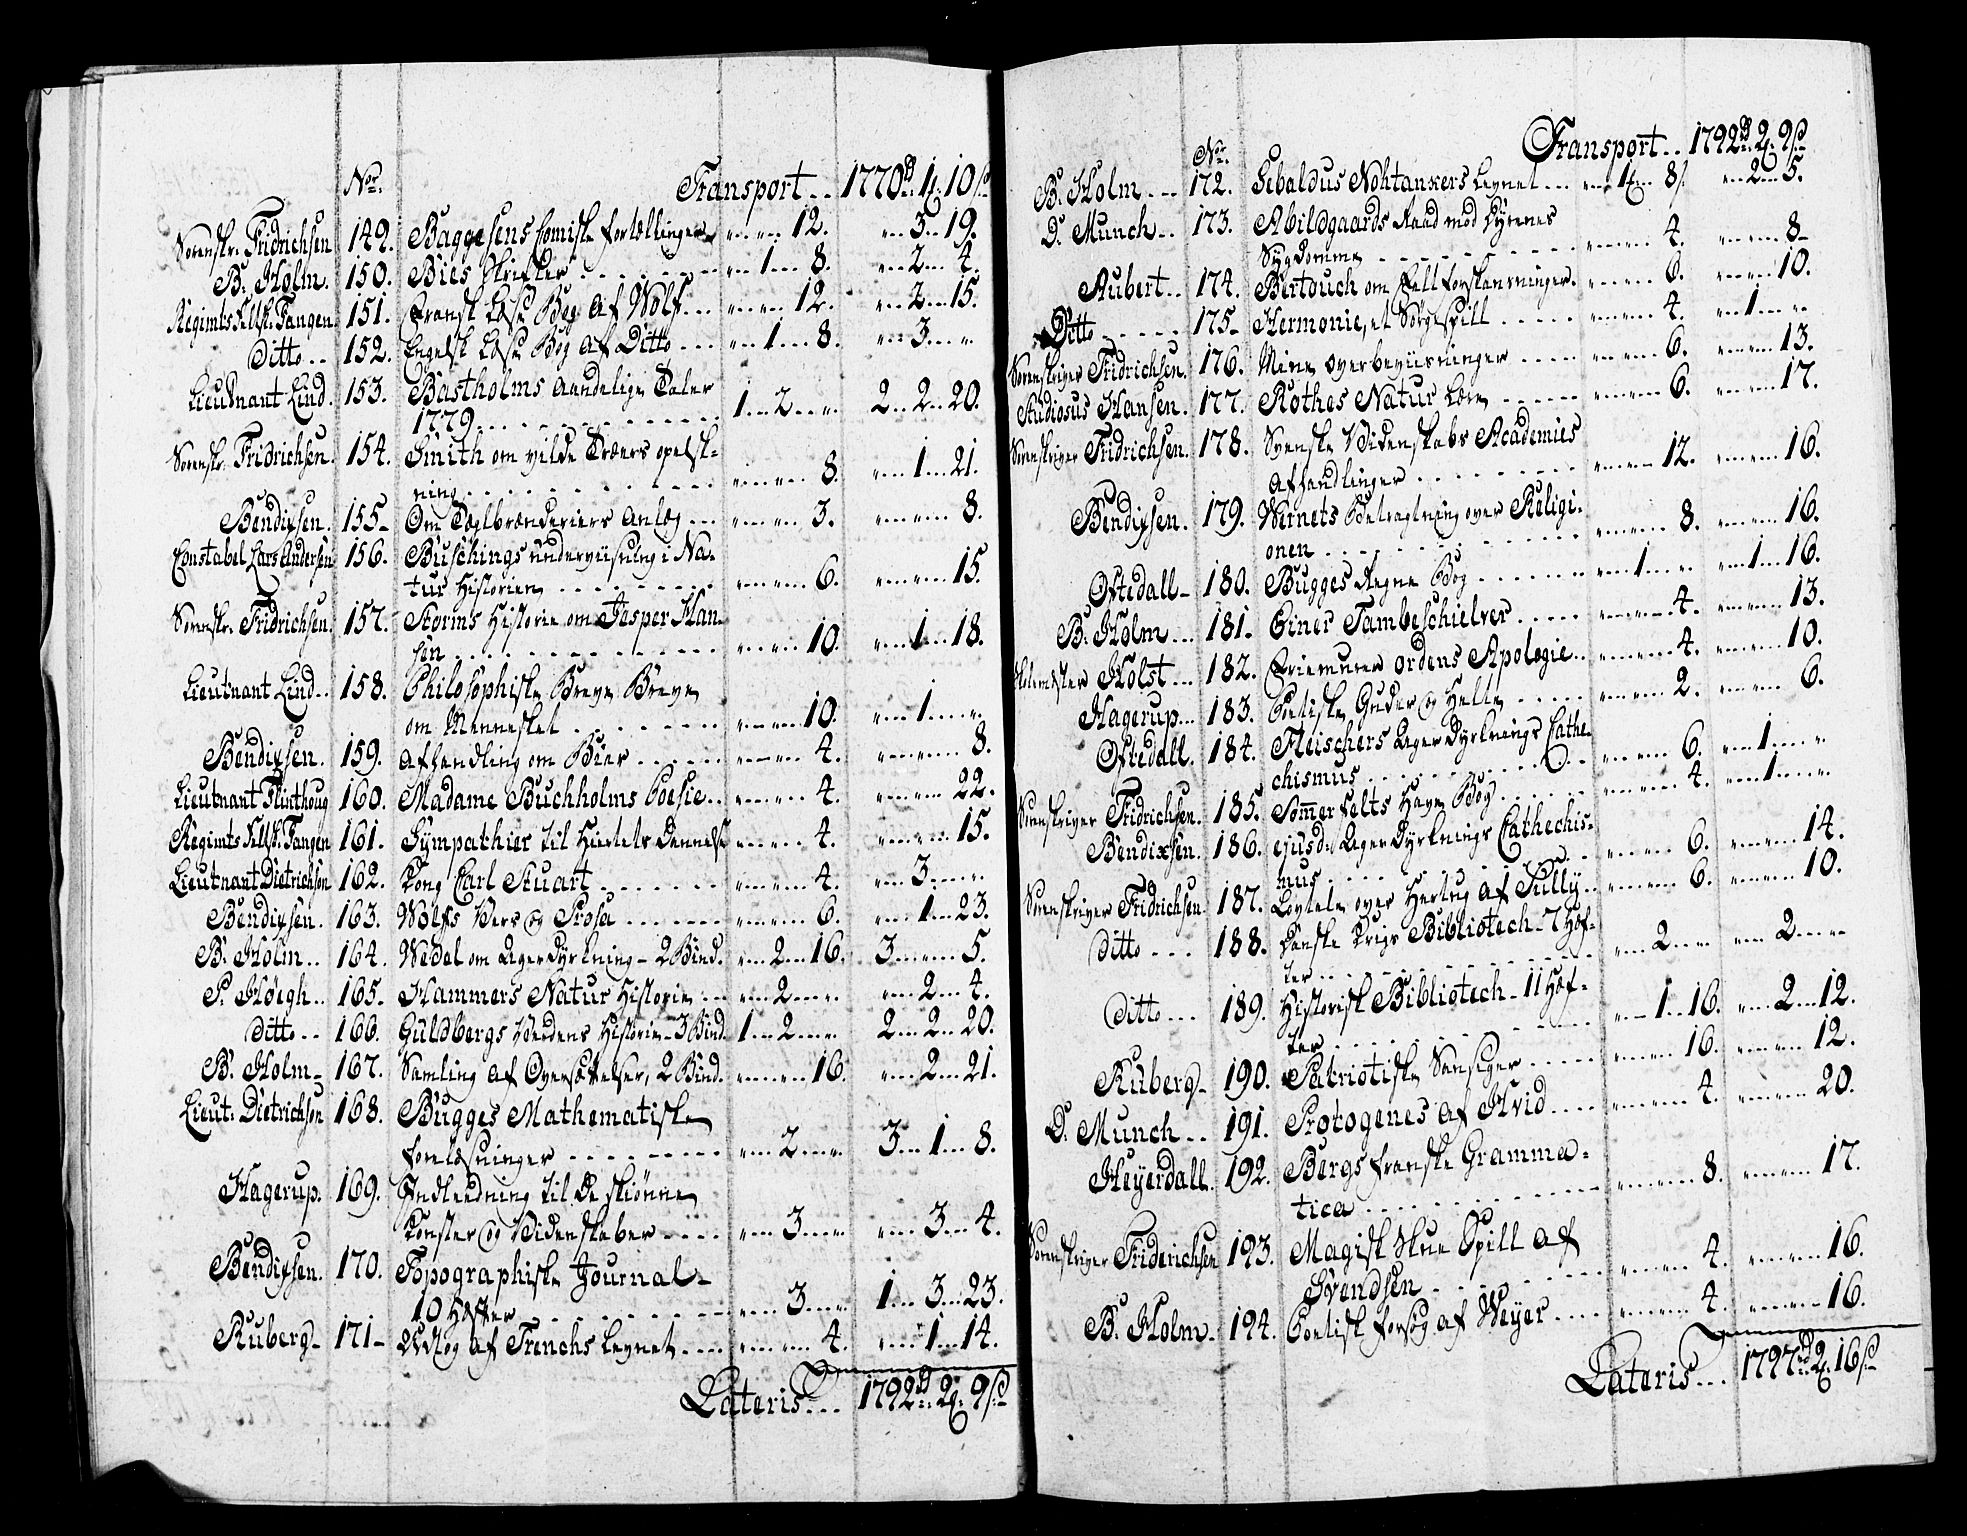 Nor. Transport... 1770 rd 1. 10 s
Sorenskr. Fridrichsen 149. Baggesens Comiske fortællinger „ „ 12. „ 3 „ 19.
B. Holm. 150. Bies Skrifter „ 1 „ 8. „ 2 „ 4.
Regimts Feldsk. Fangen 151. Fransk Læse Bog af Wolf „ „ 12. „ 2 „ 15.
Ditto 152. Engelsk Læse Bog af Ditto „ 1 „ 8. „ 3 „ „
Lieutnant Lind. 153. Bastholms Aandelige Taler
1779 1 „ 2 „ „ 2 „ 2 „ 20.
Sorenskr. Fridrichsen. 154. Smith om vilde Træers opelsk-
ning „ „ 8. „ 1 „ 21.
Bendixsen. 155. Om Teglbrænderiers Anlæg „ „ 3. „ „ 8.
Constabel Lars Andersen 156. Büschings underviisning i Na-
tur Historien „ „ 6. „ „ 15.
Sorenskr. Fridrichsen. 157. Storms Historie om Jesper Han-
sen „ „ 10. „ 1 „ 18.
Lieutnant Lind 158. Philosophiske Breve Breve
om Mennesket „ „ 10. „ 1 „ „
Bendixsen. 159. Afhandling om Bier „ „ 4. „ „ 8.
Lieutnant Flinthoug 160. Madame Buchholms Poesie „ „ 4. „ „ 22.
Regimts Feldsk. Fangen 161. Sympathier til Hiertets Dannelse „ „ 4. „ „ 15.
Lieutnant Dietrichson 162. Kong Carl Stuart „ „ 4. „ 3 „ „
Bendixsen. 163. Wolfs Vers og Prosa „ „ 6. „ 1 „ 23.
B. Holm 164. Wedel om Ager Dyrkning - 2 Bind. „ 2 „ 16. 3 „ „ 5.
P. Høegh 165. Hammers Natur Historie „ 2 „ „ „ 2 „ 4.
Ditto 166. Guldbergs Verdens Historie - 3 Bind. 1 „ 2 „ „ 2 „ 2 „ 20.
B. Holm 167. Samling af Oversættelser, 2 Bind. „ „ 16. „ 2 „ 21.
Lieut: Dietrichson 168. Bugges Mathematiske
forelæsninger „ 2 „ „ 3 „ 1 „ 8.
Hagerup. 169. Indledning til De skiønne
Konster og Videnskaber „ 3 „ „ „ 3 „ 4.
Bendixsen. 170. Topographiske Journal -
10 Hæfter „ 3 „ „ 1 „ 3 „ 23.
Ruberg 171 Udtog af Trenchs Levnet „ „ 4. „ 1 „ 14.
Lateris... 1792 rd 2. 9 s
Nor. Transport.. 1792 rd 2. 9 s
B. Holm 172. Sebaldus Nohtankers Levnet „ 1 „ 8. „ 2 „ 5.
D. Munch 173. Abildgaards Raad mod Dyrenes
Sygdomme „ „ 4. „ „ 8
Aubert 174. Bertouch om Feltforskansninger. „ „ 6. „ „ 10.
Ditto 175 Hermonie, et Sørgespill „ „ 4. „ 1 „ „
Sorenskriver Fridrichsen. 176. Mine overbeviisninger „ „ 6. „ „ 13.
Studiosus Hansen. 177. Rothes Natur Lære „ „ 6. „ „ 17.
Sorenskriver Fridrichsen. 178. Svenske Videnskabs Academies
Afhandlinger „ „ 12. „ „ 16.
Bendixsen. 179. Wernets Betragtning over Religi-
onen „ „ 8. „ „ 16.
Oftedall 180. Bugges Regne Bog „ 1 „ „ „ 1 „ 16.
B. Holm 181. Einer Tambeschielver „ „ 4. „ „ 13.
Holst 182. Friemurer ordens Apologie „ „ 4. „ „ 10.
Hagerup 183. Poetiske Guder og Helte „ „ 2. „ „ 6.
Oftedall. 184. Fleischers Ager Dyrknings Cathe-
chismus „ „ 6. „ 1 „ „
Sorenskriver Fridrichsen. 185. Sommerfelts Have Bog „ „ 4. „ 1 „ „
Bendixsen. 186. ejusd: Ager Dyrknings Cathechis-
mus „ „ 6. „ „ 14.
Sorenskriver Fridrichsen. 187. Lovtale over Hertug af Sully „ „ 6. „ „ 10.
Ditto 188. Danske Krigs Bibliotech - 7 Hæf-
ter „ 2 „ „ „ 2 „ „
Ditto 189. Historisk Bibliotech - 11 Hæf-
ter „ 1 „ 16. „ 2 „ 12.
Ruberg 190. Patriotiske „ „ 16. „ „ 12.
D. Munch 191. Protogenes af Hvid „ „ 4. „ „ 20.
Heyerdall. 192. Bergs franske Gramma-
tica „ „ 8. „ „ 17.
Sorenskriver Friderichsen 193. Magisk Skue Spill af
Svendsen „ „ 4. „ „ 16.
B. Holm 194. Poetisk forsøg af Weyer „ „ 4. „ „ 16.
Lateris... 1797 rd 2. 16 s